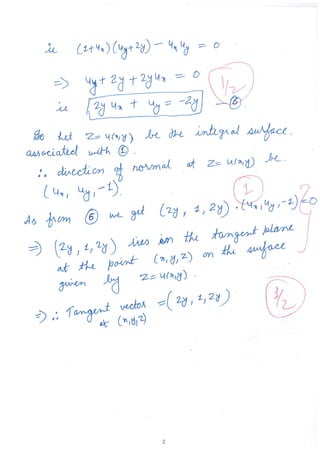 ie (1+uₓ)(u_y+2y) − uₓ u_y = 0
⇒ u_y + 2y + 2y uₓ = 0
1/2
ie 2y uₓ + u_y = −2y — ⑥
So Let Z = u(x,y) be the integral surface.
associated with ①.
∴ direction of normal at Z = u(x,y) be.
(uₓ, u_y, −1).
1
As from ⑥ we get (2y, 1, 2y)·(uₓ, u_y, −1) = 0
⇒ (2y, 1, 2y) lies on the tangent plane
at the point (x,y,z) on the surface
given by Z = u(x,y).
⇒ ∴ Tangent vector = (2y, 1, 2y)
at (x,y,z)
1/2
2